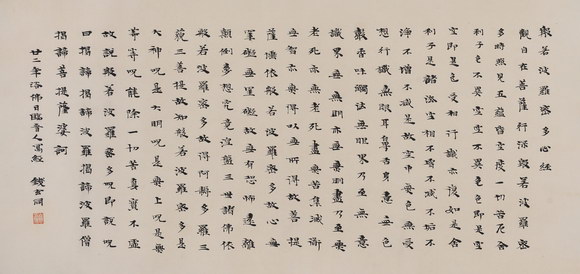 般若波羅蜜多心經
觀自在菩薩行深般若波羅蜜
多時照見五蘊皆空度一切苦厄舍
利子色不異空空不異色色即是空
空即是色受想行識亦復如是舍
利子是諸法空相不生不滅不垢不
淨不增不減是故空中無色無受
想行識無眼耳鼻舌身意無色
聲香味觸法無眼界乃至無意
識界無無明亦無無明盡乃至無
老死亦無老死盡無苦集滅道
無智亦無得以無所得故菩提
薩埵依般若波羅蜜多故心無
罣礙無罣礙故無有恐怖遠離
顛倒夢想究竟涅槃三世諸佛依
般若波羅蜜多故得阿耨多羅三
藐三菩提故知般若波羅蜜多是
大神呪是大明呪是無上呪是無
等等呪能除一切苦真實不虛
故說般若波羅蜜多呪即說呪
曰揭諦揭諦波羅揭諦波羅僧
揭諦菩提薩婆訶
廿二年浴佛日臨晉人寫經 錢玄同